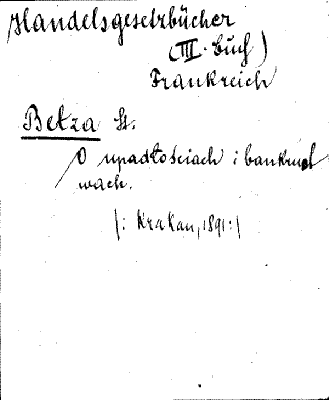 Handelsgesetzbücher
(III. buch)
Frankreich
Betza St.
O upadłościach i bankruct
wach.
/: Krakau, 1891 :/